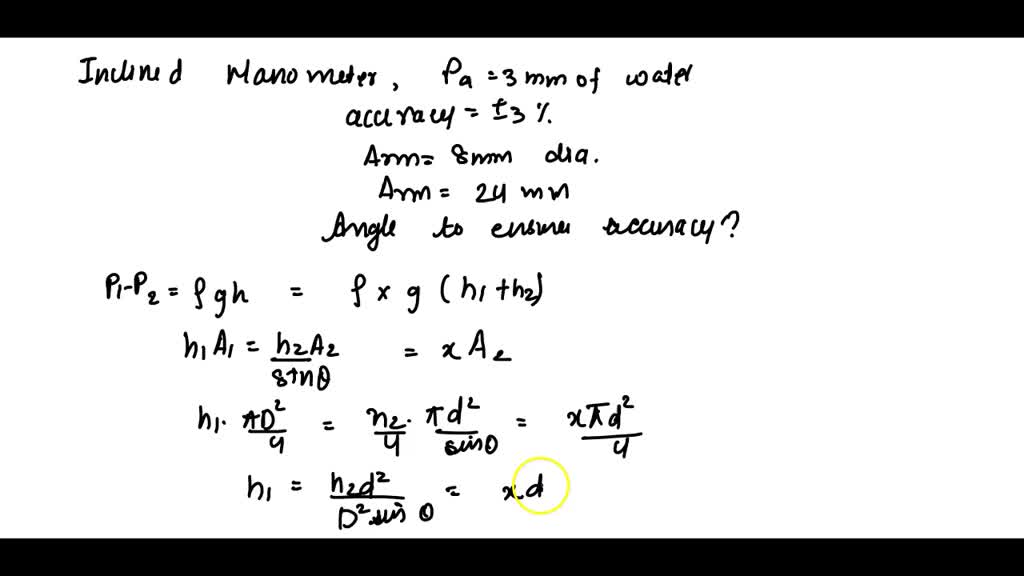 Inclined Manometer, Pa = 3 mm of water
accuracy = ±3 %.
Arm = 8mm dia.
Arm = 24 mm
Angle to ensure accuracy?
P1-P2 = ρgh = ρ x g (h1+h2)
h1A1 = h2A2/sinθ = x A2
h1. πD²/4 = h2/4 . πd²/sinθ = xπd²/4
h1 = h2d²/D² sin θ = xd